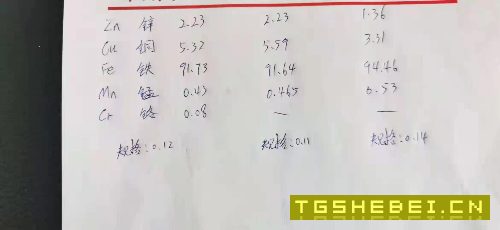 Zn 锌 2.23 2.23 1.36
Cu 铜 5.32 5.59 3.31
Fe 铁 91.73 91.64 94.46
Mn 锰 0.43 0.465 0.53
Cr 铬 0.08 — —
规格:0.12 规格:0.11 规格:0.14
TGSHEBEI.CN